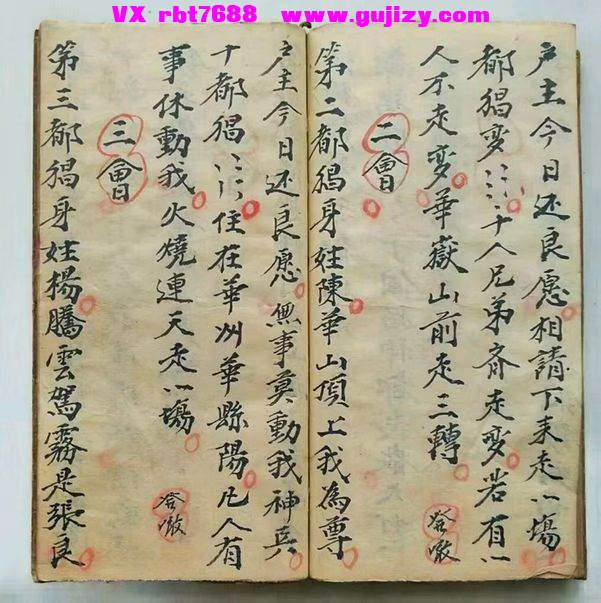 VX rbt7688 www.gujizy.com
户主今日还良愿相請下来走一場
都猖变⺀⺀十人兄弟齐走变若有一
人不走变華嶽山前走三轉
二會
第二都猖身姓陳華山頂上我為尊
户主今日还良愿無事莫動我神兵
十都猖⺀住在華州華縣陽凡人有
事休動我火燒連天走一場
三會
第三都猖身姓楊騰雲駕霧是張良